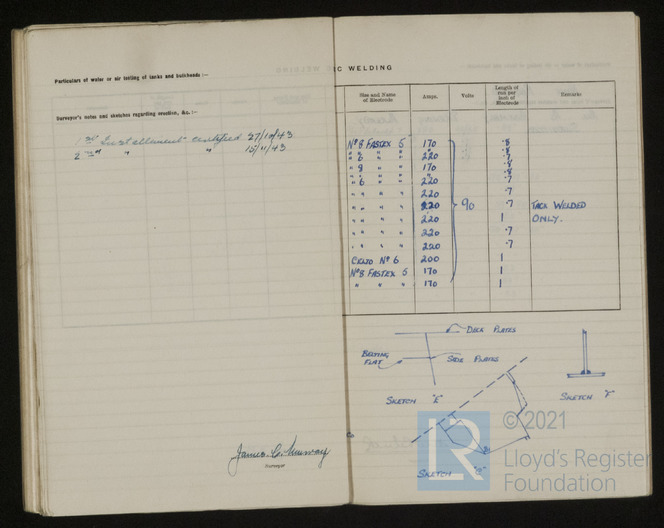 Particulars of water or air testing of tanks and bulkheads :—
Surveyor's notes and sketches regarding erection, &c. :—
1st Instalment certified 27/10/43
2nd " " 15/11/43
James C.
Surveyor
IC WELDING
Size and Name of Electrode Amps. Volts Length of run per inch of Electrode Remarks
Nº 8 FASTEX 5 170 ·8
" " " " ·8
" 6 " " 220 ·7
" 8 " " 170 ·8
" " " " " ·8
" 6 " " 220 ·7
" " " " 220 ·7
" " " " 220 90 ·7 TACK WELDED
" " " " 220 1 ONLY.
" " " " 220 ·7
" " " " 220 ·7
Nº 6 200 1
Nº 8 FASTEX 5 170 1
" " " 170 1
DECK PLATES
BELTING FLAT
SIDE PLATES
SKETCH "E"
SKETCH "F"
SKETCH
LR
© 2021
Lloyd's Register
Foundation